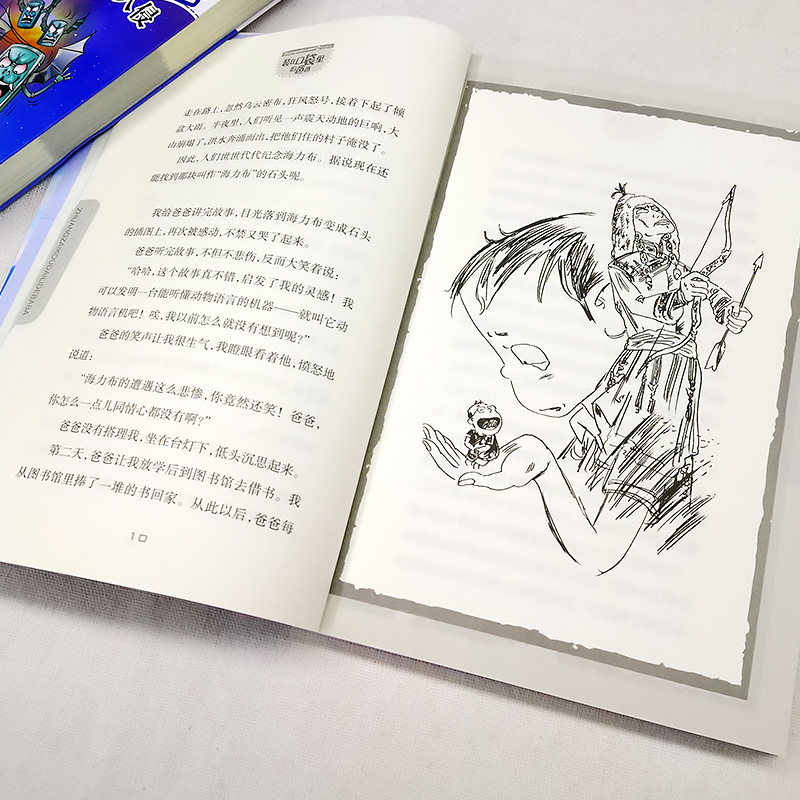 装在口袋里
的爸爸
走在路上，忽然乌云密布，狂风怒号，接着下起了倾
盆大雨。半夜里，人们听见一声震天动地的巨响，大
山崩塌了，洪水奔涌而出，把他们住的村子淹没了。
因此，人们世世代代纪念海力布。据说现在还
能找到那块叫作“海力布”的石头呢。
我给爸爸讲完故事，目光落到海力布变成石头
的插图上，再次被感动，不禁又哭了起来。
爸爸听完故事，不但不悲伤，反而大笑着说：
“哈哈，这个故事真不错，启发了我的灵感！我
可以发明一台能听懂动物语言的机器——就叫它动
物语言机吧！唉，我以前怎么就没有想到呢？”
爸爸的笑声让我很生气，我瞪眼看着他，愤怒地
说道：
“海力布的遭遇这么悲惨，你竟然还笑！爸爸，
你怎么一点儿同情心都没有啊？”
爸爸没有搭理我，坐在台灯下，低头沉思起来。
第二天，爸爸让我放学后到图书馆去借书。我
从图书馆里捧了一堆的书回家。从此以后，爸爸每
10
ZHUANGZAIKOUDAILIDEBABA